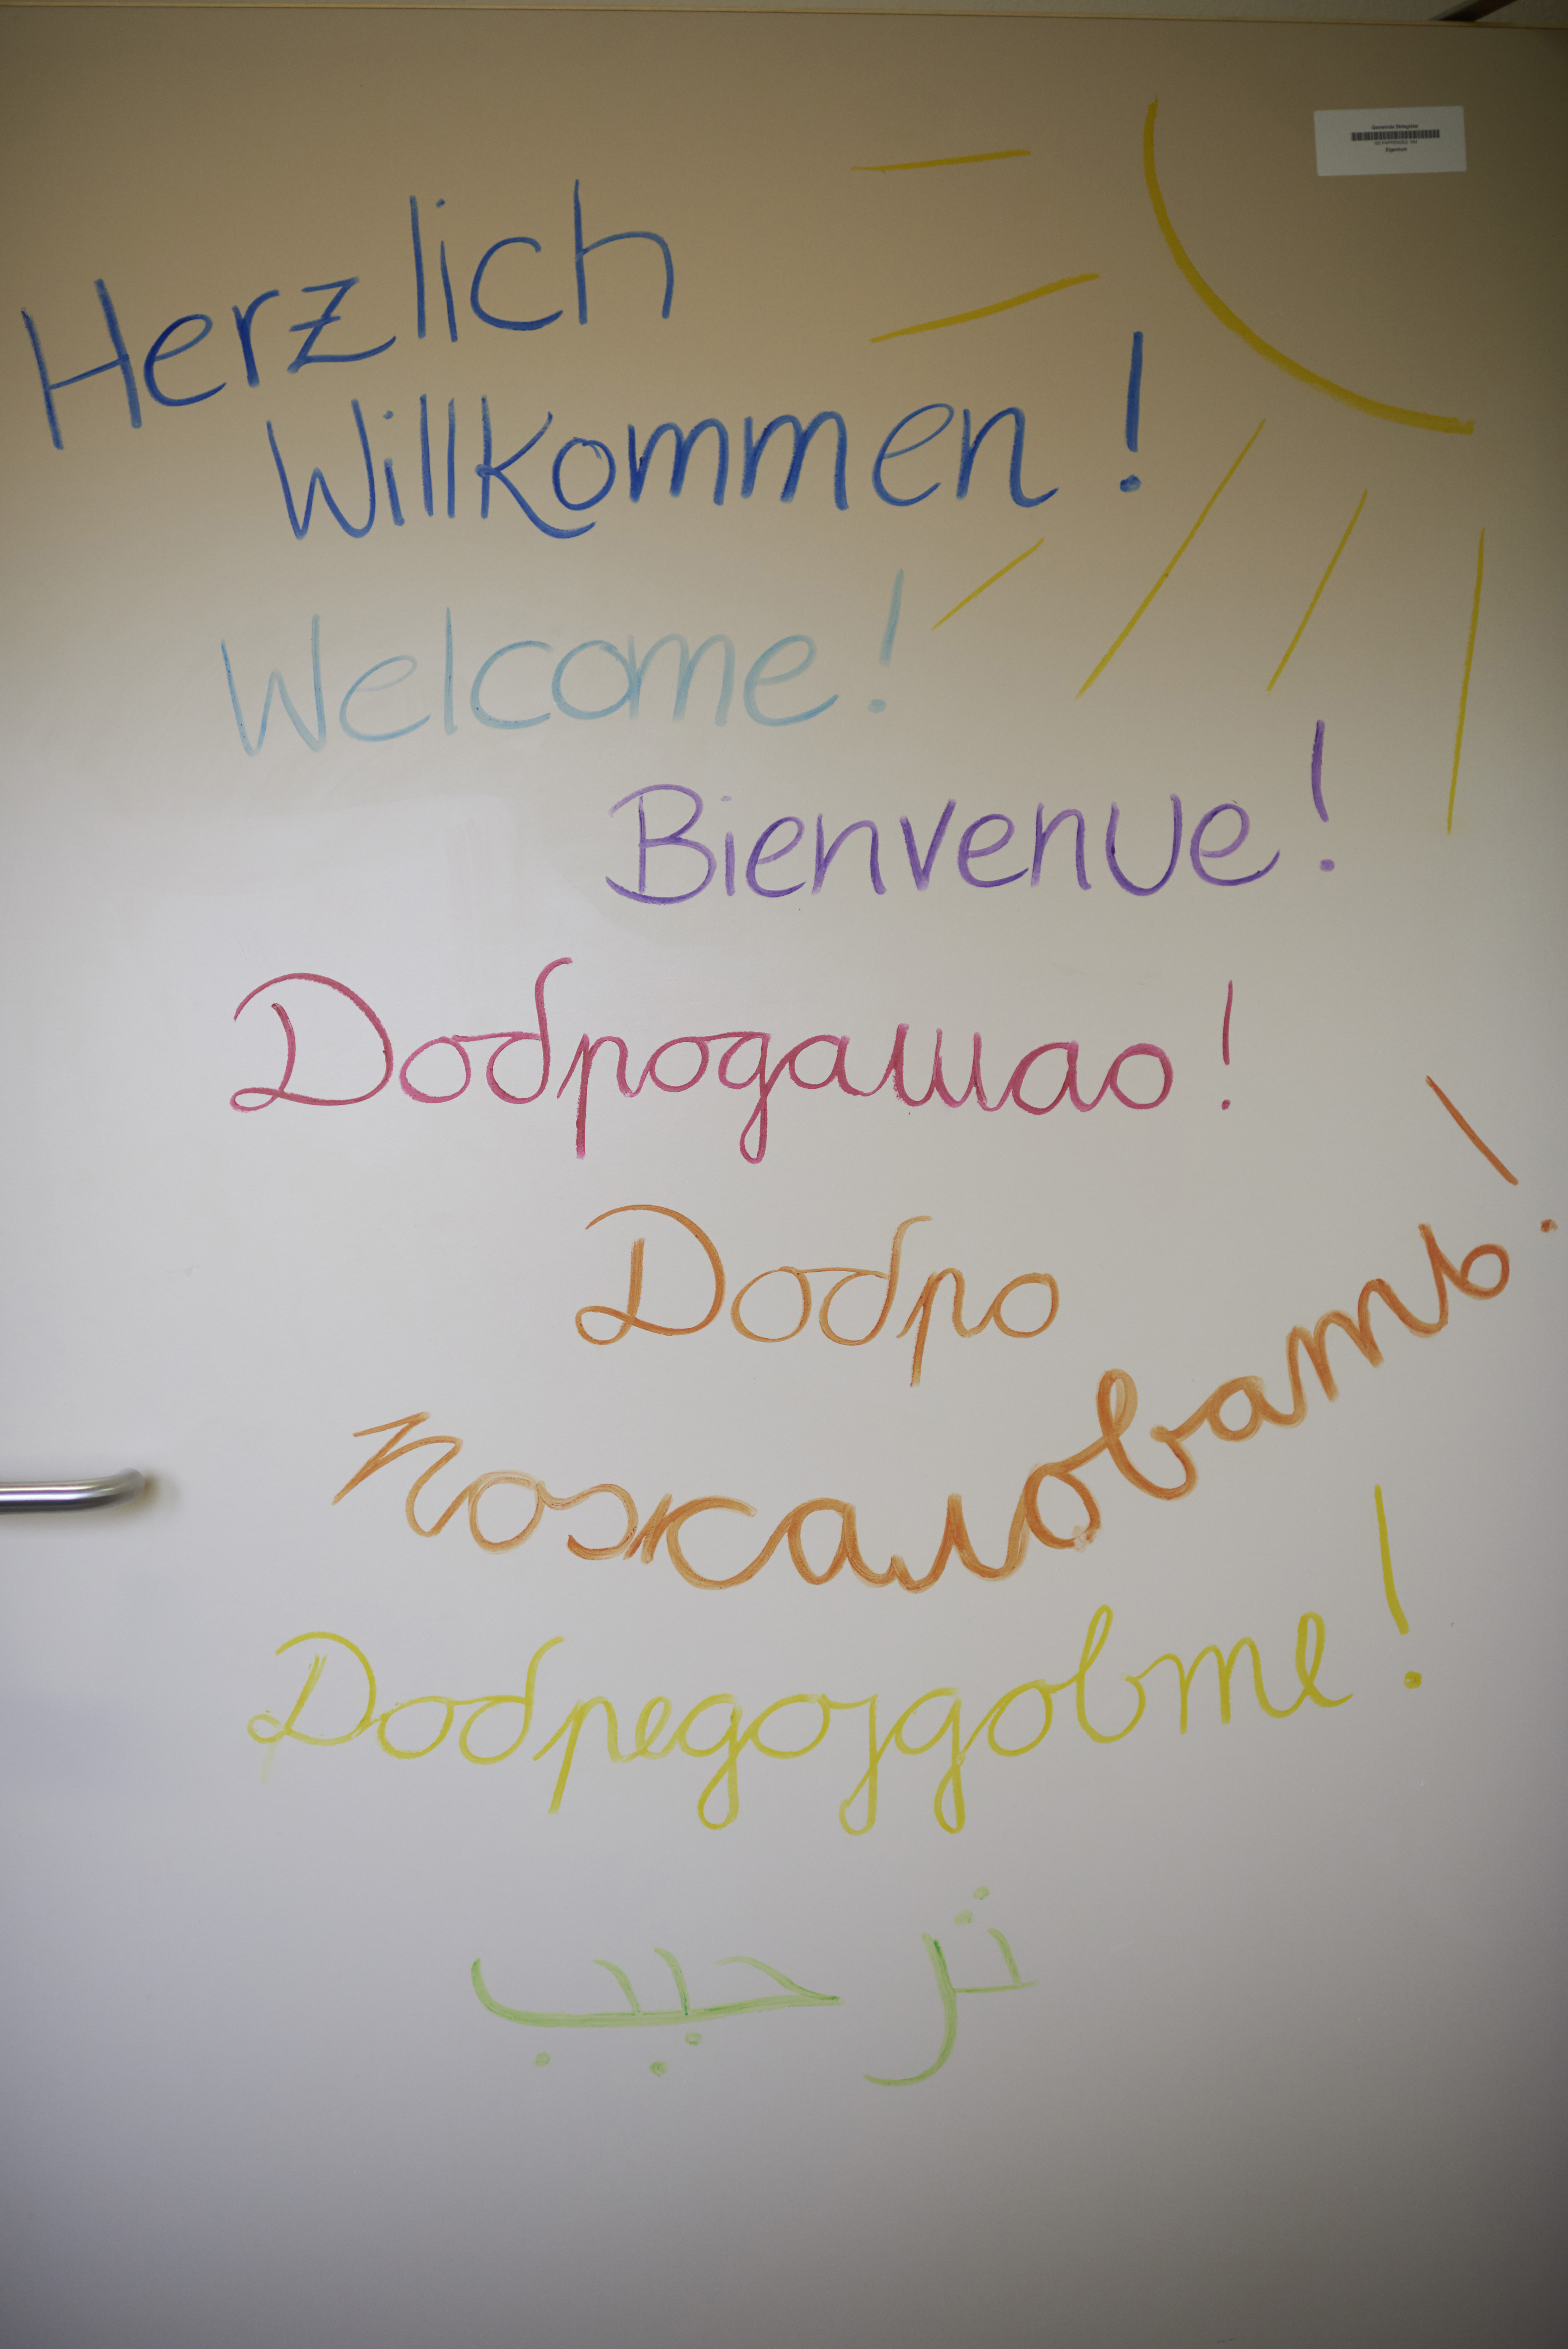 Herzlich
Willkommen!
Welcome!
Bienvenue!
Добродашао!
Добро
пожаловать!
Добредојдовте!
ترحيب
Eigentum